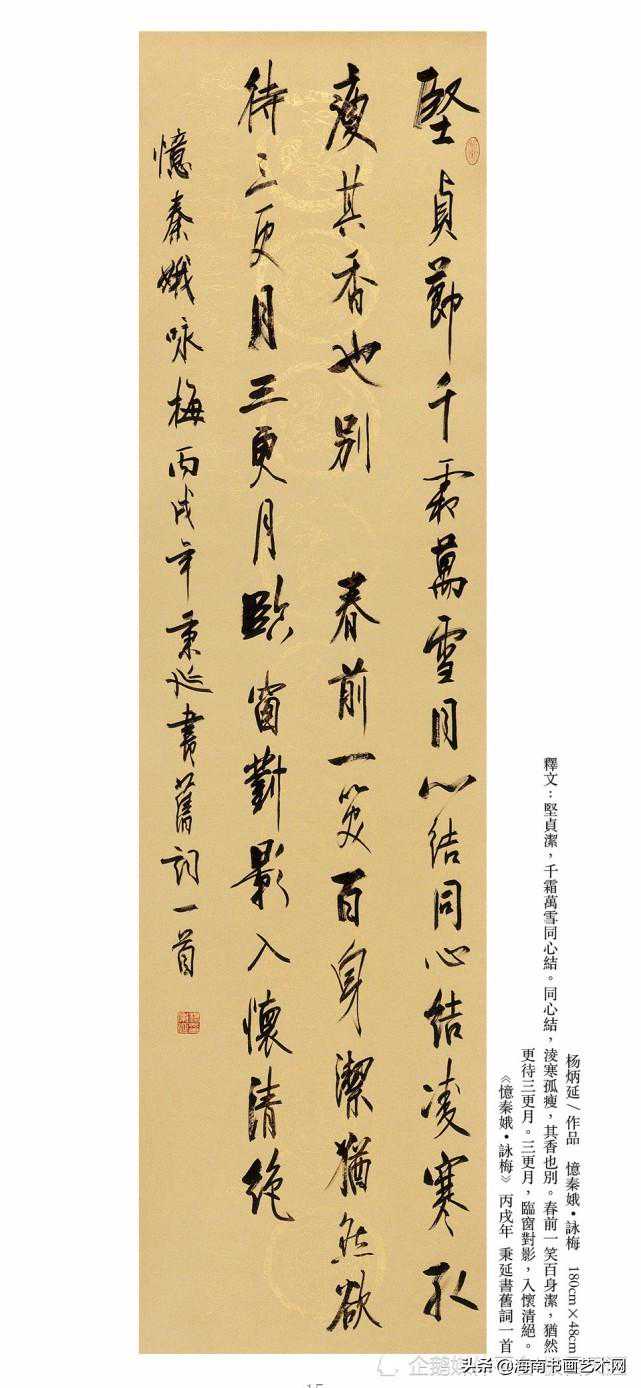 堅貞節千霜萬雪同心結同心結凌寒孤
瘦其香也別 春前一笑百身潔猶然欲
待三更月三更月臨窗對影入懷清絕
憶秦娥咏梅丙戌年秉延書舊詞一首
杨炳延/作品 憶秦娥•詠梅 180cm×48cm
釋文：堅貞潔，千霜萬雪同心結。同心結，淩寒孤瘦，其香也別。春前一笑百身潔，猶然
更待三更月。三更月，臨窗對影，入懷清絕。
《憶秦娥•詠梅》 丙戌年 秉延書舊詞一首
头条 @海南书画艺术网